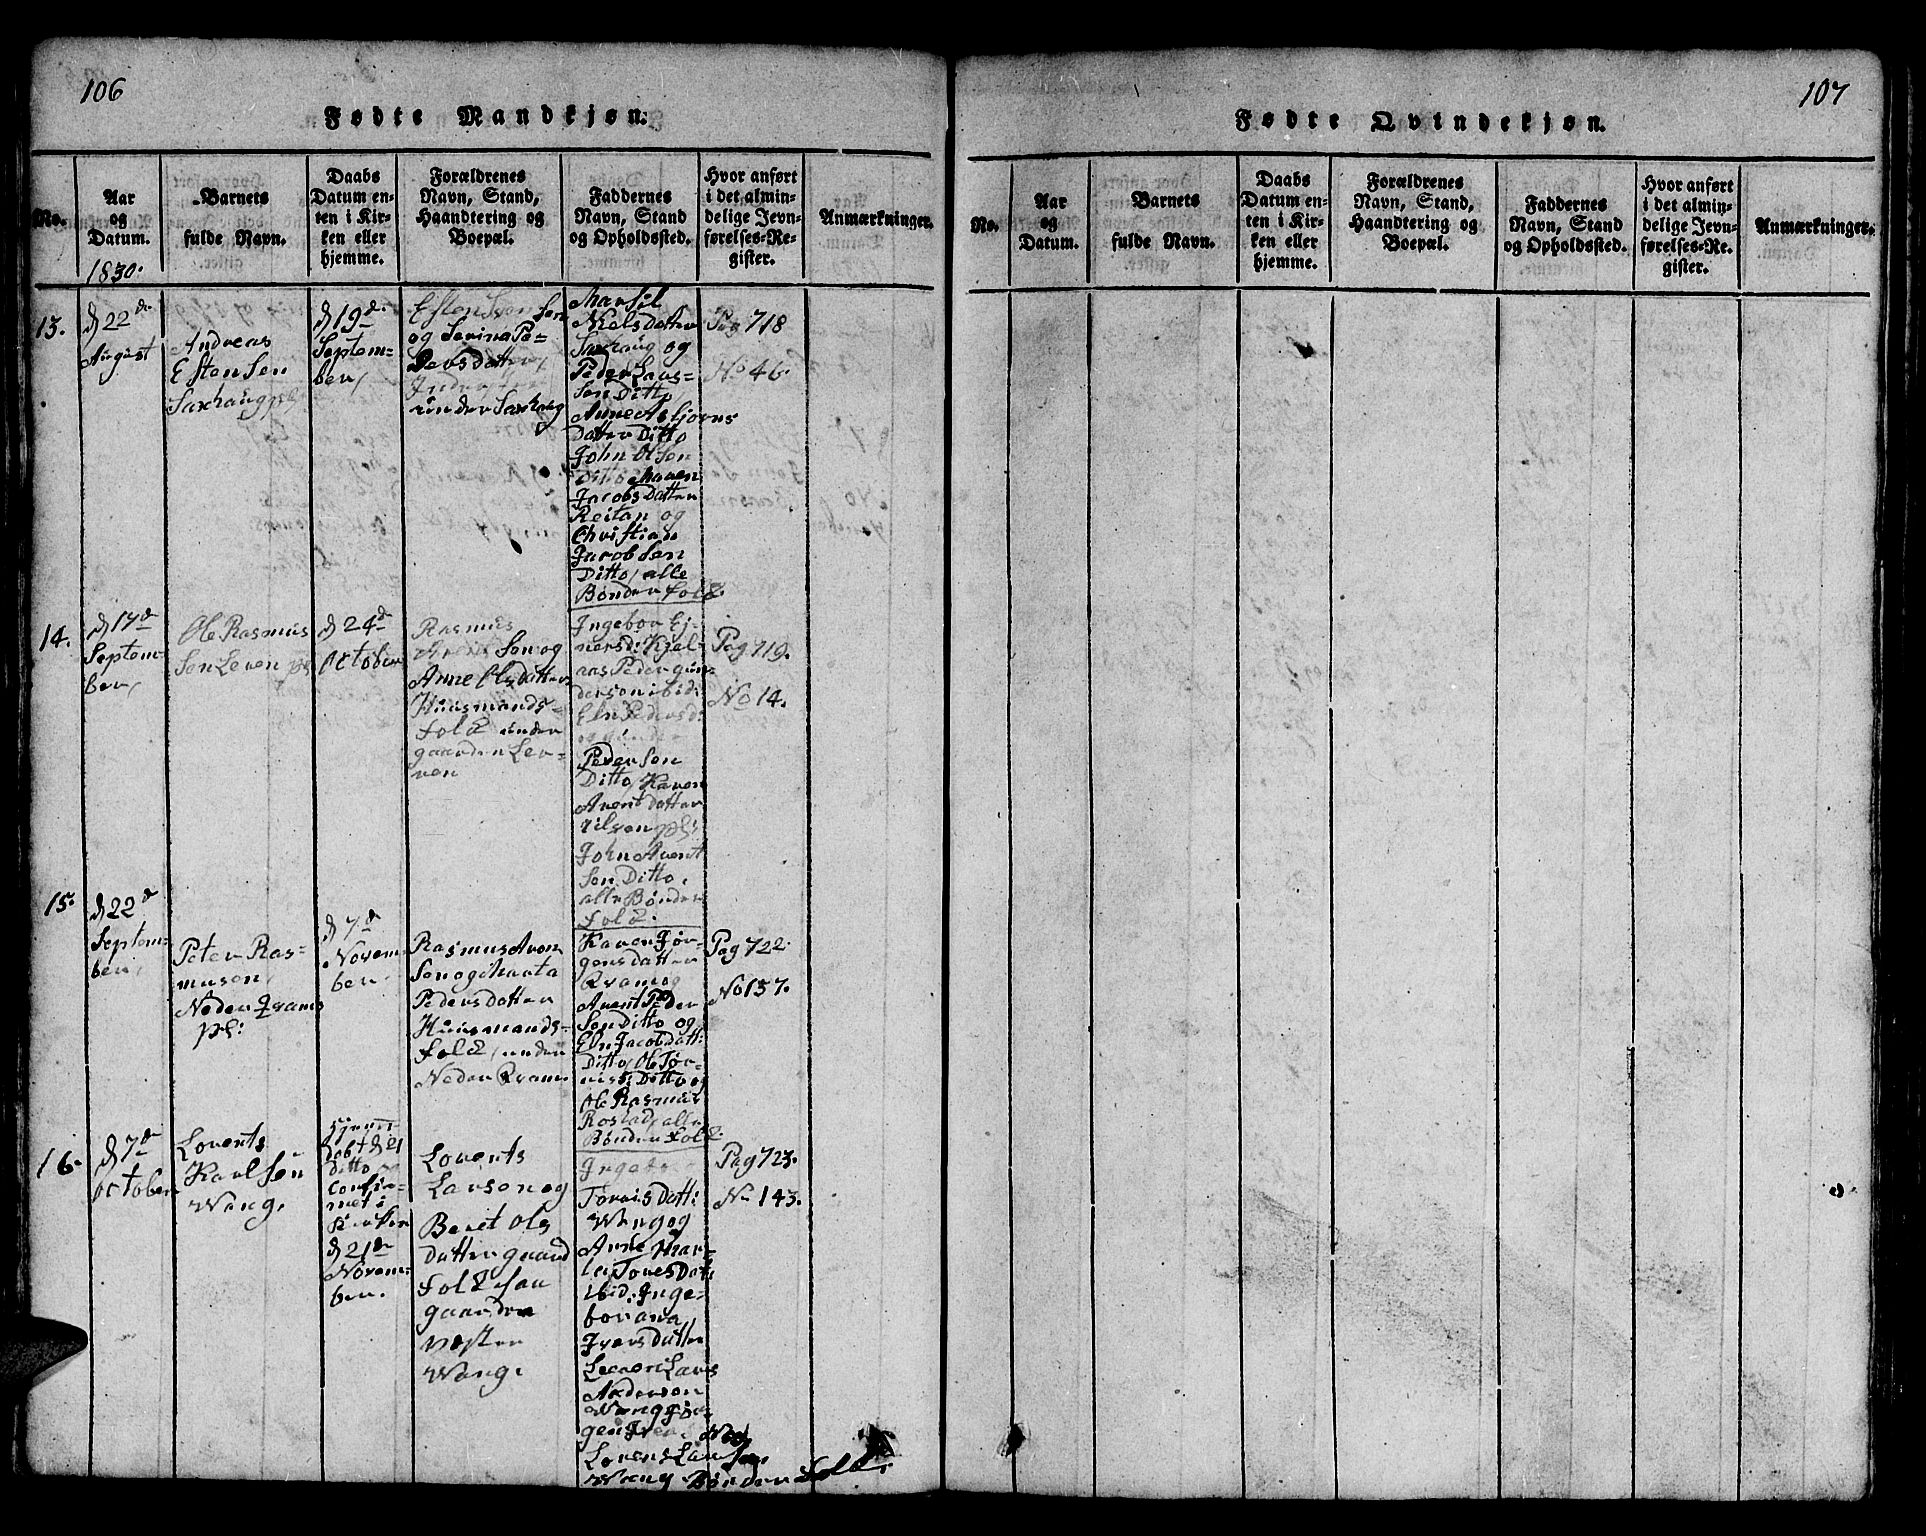 106
Fødte Mandkjøn.
No.
Aar
og
Datum.
1830.
Barnets
fulde Navn.
Daabs
Datum en-
ten i Kir-
ken eller
hjemme.
Forældrenes
Navn, Stand,
Haandtering og
Boepæl.
Faddernes
Navn, Stand
og Opholdssted.
Hvor anført
i det almin-
delige Jevn-
førelses-Re-
gister.
Anmærkninger.
13.
d 22de
August
Andreas
Estensen
Saxhaug
d 19de
Septem-
ber,
Esten
og Serina Pe-
ders datter,
under Saxhaug
Marsil
Niels datter
Saxhaug og
Peder Lars-
sen Ditto,
Anne Asbjørns
datter Ditto
John Olsen
Ditto Maren
Jacobs Datter
Reitan og
Christian
Jacobsen
Ditto, alle
Bønder folk.
Pag 718
No 46.
14.
d 17de
Septem-
ber,
Ole Rasmus
Sen Leven pl
d 24de
October
Rasmus
Sen og
Anne Olsdatter
Huusmands-
folk under
gaarden Lev-
ren
Ingebor Ej-
nersd: Kjel-
aas Peder gun-
derson ibid:
Eln Pedersd:
og gunder
Peder Sen
Ditto, Karen
Arent datter
pl:
John Arent
Sen Ditto,
alle Bønder
folk.
Pag 719.
No 14.
15.
d 22de
Septem-
ber,
Peter Ras-
musen,
Neder Qvams
pl:
d 7de
Novem-
ber.
Rasmus Aron
Sen og Marta
Peders datter
Huusmands-
folk, under
Neder Qvam.
Karen Jør-
gens datter
Qvam og
Arent Peder
Sen Ditto og
Eln Jacobdatt:
Ditto, Ole Tør-
Ditto og
Ole Rasmus
Rostad, alle
Bønder folk.
Pag 722.
No 137.
16.
d 7de
October
Lorents
Karlsen
Wang.
Hjemme-
døbt d 21
ditto
confir-
met i
Kirken
d 21de
Novem-
ber.
Lorents
Larsen og
Beret Ols
datter gaard
folk paa
gaarden
Vester
Wang.
Ingebor
Tørris datt:
Wang og
Anne Mar-
ta Tores Datt
ibid: Inge-
borana
Ivers datter
Lars
Anderson
Wang Jør-
gen Iver.
Lorens Lar Sen.
Wang Bønder folk.
Pag 723.
No 143.
107
Fødte Qvindekjøn.
No.
Aar
og
Datum.
Barnets
fulde Navn.
Daabs
Datum en-
ten i Kir-
ken eller
hjemme.
Forældrenes
Navn, Stand,
Haandtering og
Boepæl.
Faddernes
Navn, Stand
og Opholdssted.
Hvor anført
i det almin-
delige Jevn-
førelses-Re-
gister.
Anmærkninger.